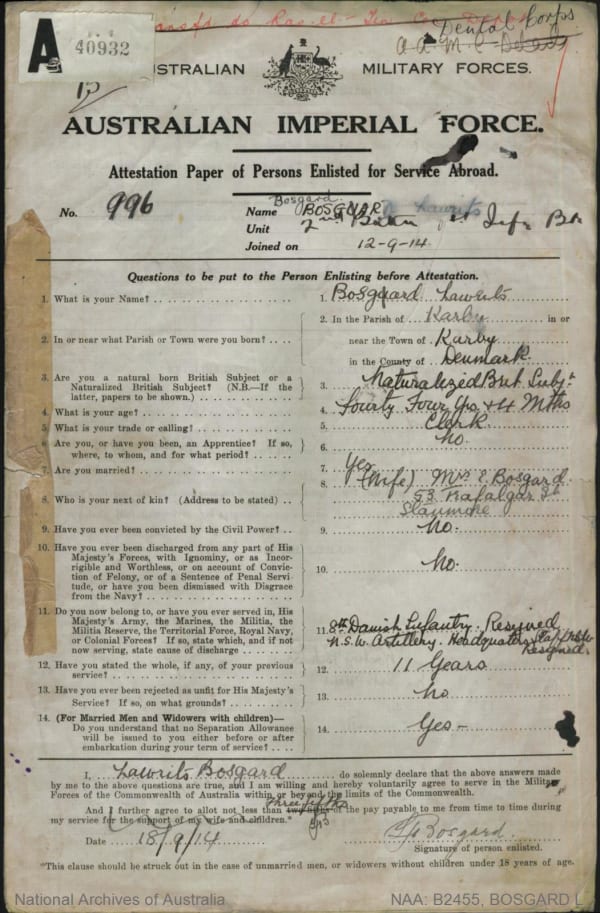 A
40932
Dental Corps
A.A.M.C.
AUSTRALIAN MILITARY FORCES.
AUSTRALIAN IMPERIAL FORCE.
Attestation Paper of Persons Enlisted for Service Abroad.
No. 996
Bosgard
Name BOSGAARD Lawrits
Unit 2nd Battn 1st Infy Bde
Joined on 12-9-14
Questions to be put to the Person Enlisting before Attestation.
1. What is your Name? 1. Bosgaard Lawrits
2. In or near what Parish or Town were you born? 2. In the Parish of Karby in or
near the Town of Karby
in the County of Denmark
3. Are you a natural born British Subject or a Naturalized British Subject? (N.B.—If the latter, papers to be shown.) 3. Naturalized Brit. Subjt
4. What is your age? 4. Fourty Four Yrs + 4 Mths
5. What is your trade or calling? 5. Clerk
6. Are you, or have you been, an Apprentice? If so, where, to whom, and for what period? 6. No.
7. Are you married? 7. Yes
8. Who is your next of kin? (Address to be stated) 8. (Wife) Mrs E. Bosgard
53 Trafalgar St
Stanmore
9. Have you ever been convicted by the Civil Power? 9. No.
10. Have you ever been discharged from any part of His Majesty's Forces, with Ignominy, or as Incorrigible and Worthless, or on account of Conviction of Felony, or of a Sentence of Penal Servitude, or have you been dismissed with Disgrace from the Navy? 10. No.
11. Do you now belong to, or have you ever served in, His Majesty's Army, the Marines, the Militia, the Militia Reserve, the Territorial Force, Royal Navy, or Colonial Forces? If so, state which, and if not now serving, state cause of discharge 11. 8th Danish Infantry. Resigned
N.S.W. Artillery. Headquaters Staff NSW
Resigned.
12. Have you stated the whole, if any, of your previous service? 12. 11 Years
13. Have you ever been rejected as unfit for His Majesty's Service? If so, on what grounds? 13. No
14. (For Married Men and Widowers with children)—
Do you understand that no Separation Allowance will be issued to you either before or after embarkation during your term of service? 14. Yes -
I, Lawrits Bosgard do solemnly declare that the above answers made
by me to the above questions are true, and I am willing and hereby voluntarily agree to serve in the Military
Forces of the Commonwealth of Australia within or beyond the limits of the Commonwealth.
three fifths
And I further agree to allot not less than two-fifths of the pay payable to me from time to time during
my service for the support of my wife and children.*
Date 18/9/14 L Bosgard.
Signature of person enlisted.
*This clause should be struck out in the case of unmarried men, or widowers without children under 18 years of age.
National Archives of Australia NAA: B2455, BOSGARD L